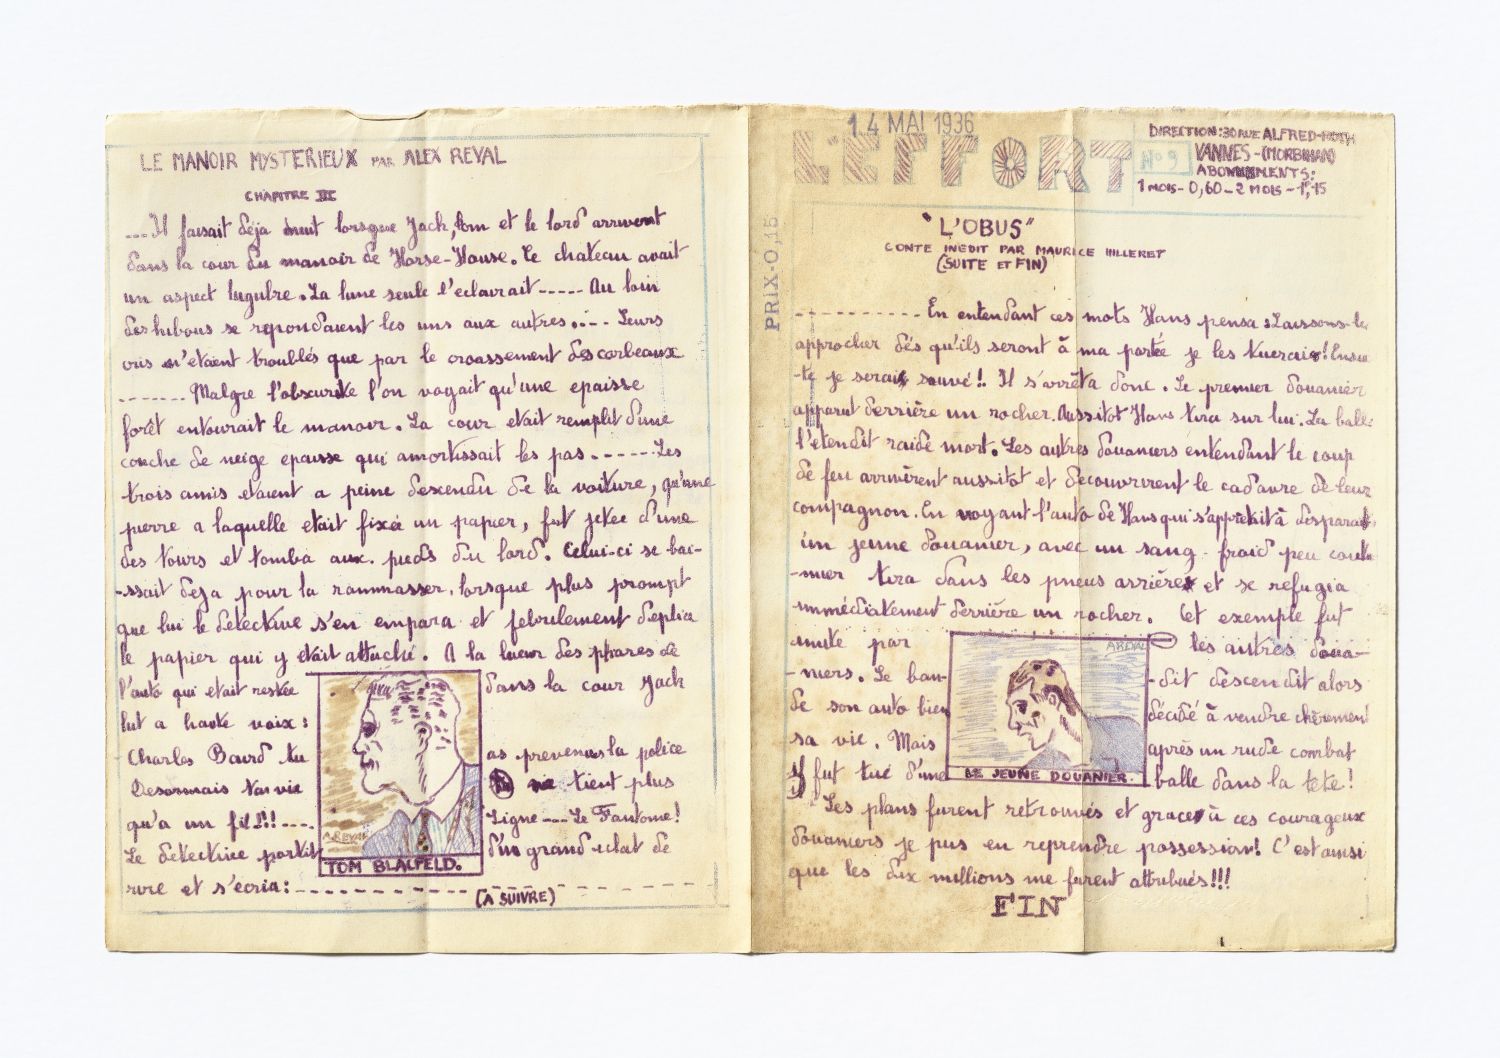 LE MANOIR MYSTERIEUX PAR ALEX REVAL
CHAPITRE III
---Il faisait déja nuit lorsque Jack, tom et le lord arrivent
dans la cour du manoir de Horse-House. Le chateau avait
un aspect lugubre. La lune seule l'eclairait----- Au loin
des hibous se repondaient les uns aux autres.... Leurs
cris n'etaient troublés que par le croassement des corbeaux
....... Malgre l'obscurite l'on voyait qu'une epaisse
forêt entourait le manoir. La cour etait remplit d'une
couche de neige epaisse qui amortissait les pas------Les
trois amis etaient a peine descendu de la voiture, qu'une
pierre a laquelle etait fixée un papier, fut jetee d'une
des tours et tomba aux pieds du lord. Celui-ci se bai-
-ssait deja pour la rammasser, lorsque plus prompt
que lui le détective s'en empara et febrilement deplia
le papier qui y etait attaché. A la lueur des phares de
l'auto qui etait restée dans la cour Jack
lut a haute voix:
Charles Bard tu as prevenus la police
Desormais ta vie ne tient plus
qu'a un fil!!!---- Ligne---Le Fantome!
Le detective partit d'un grand éclat de
rire et s'écria:------------
A.REVAL
TOM BLALFELD.
(A SUIVRE)
14 MAI 1936
L'EFFORT
N°9
DIRECTION: 30 RUE ALFRED-ROTH
VANNES-(MORBIHAN)
ABONNEMENTS:
1 MOIS-0,60-2 MOIS-1F,15
PRIX-0,15
"L'OBUS"
CONTE INEDIT PAR MAURICE HILLERET
(SUITE ET FIN)
---------- En entendant ces mots Hans pensa: Laissons-les
approcher dés qu'ils seront à ma portée je les tuerais! Ensui
-te je serais sauvé!! Il s'arrêta donc. Le premier douanier
apparut derrière un rocher. Aussitot Hans tira sur lui. La balle
l'etendit raide mort. Les autres douaniers entendant le coup
de feu arrivèrent aussitot et decouvrirent le cadavre de leur
compagnon. En voyant l'auto de Hans qui s'apprêtait à disparait
un jeune douanier, avec un sang-froid peu coutu
-mier tira dans les pneus arriéres et se refugia
immédiatement derrière un rocher. Cet exemple fut
imité par les autres doua-
-niers. Le ban- -dit descendit alors
de son auto bien décidé à vendre chèrement
sa vie. Mais après un rude combat
il fut tué d'une balle dans la tete!
Les plans furent retrouvés et grace à ces courageux
douaniers je pus en reprendre possession! C'est ainsi
que les dix millions me furent attribués!!!
A REVAL
LE JEUNE DOUANIER.
FIN